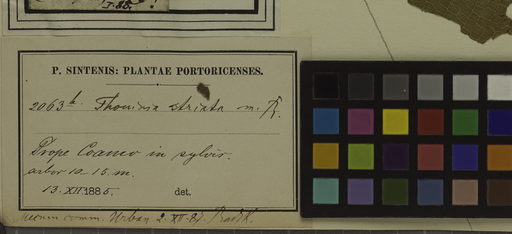 I. 85.
P. SINTENIS: PLANTAE PORTORICENSES.
2063 b. Thouinia striata m. R.
Prope Coamo in sylvis.
arbor 10-15 m.
13. XII 1885. det.
comm. Urban 2. XII. 87. Radlk.